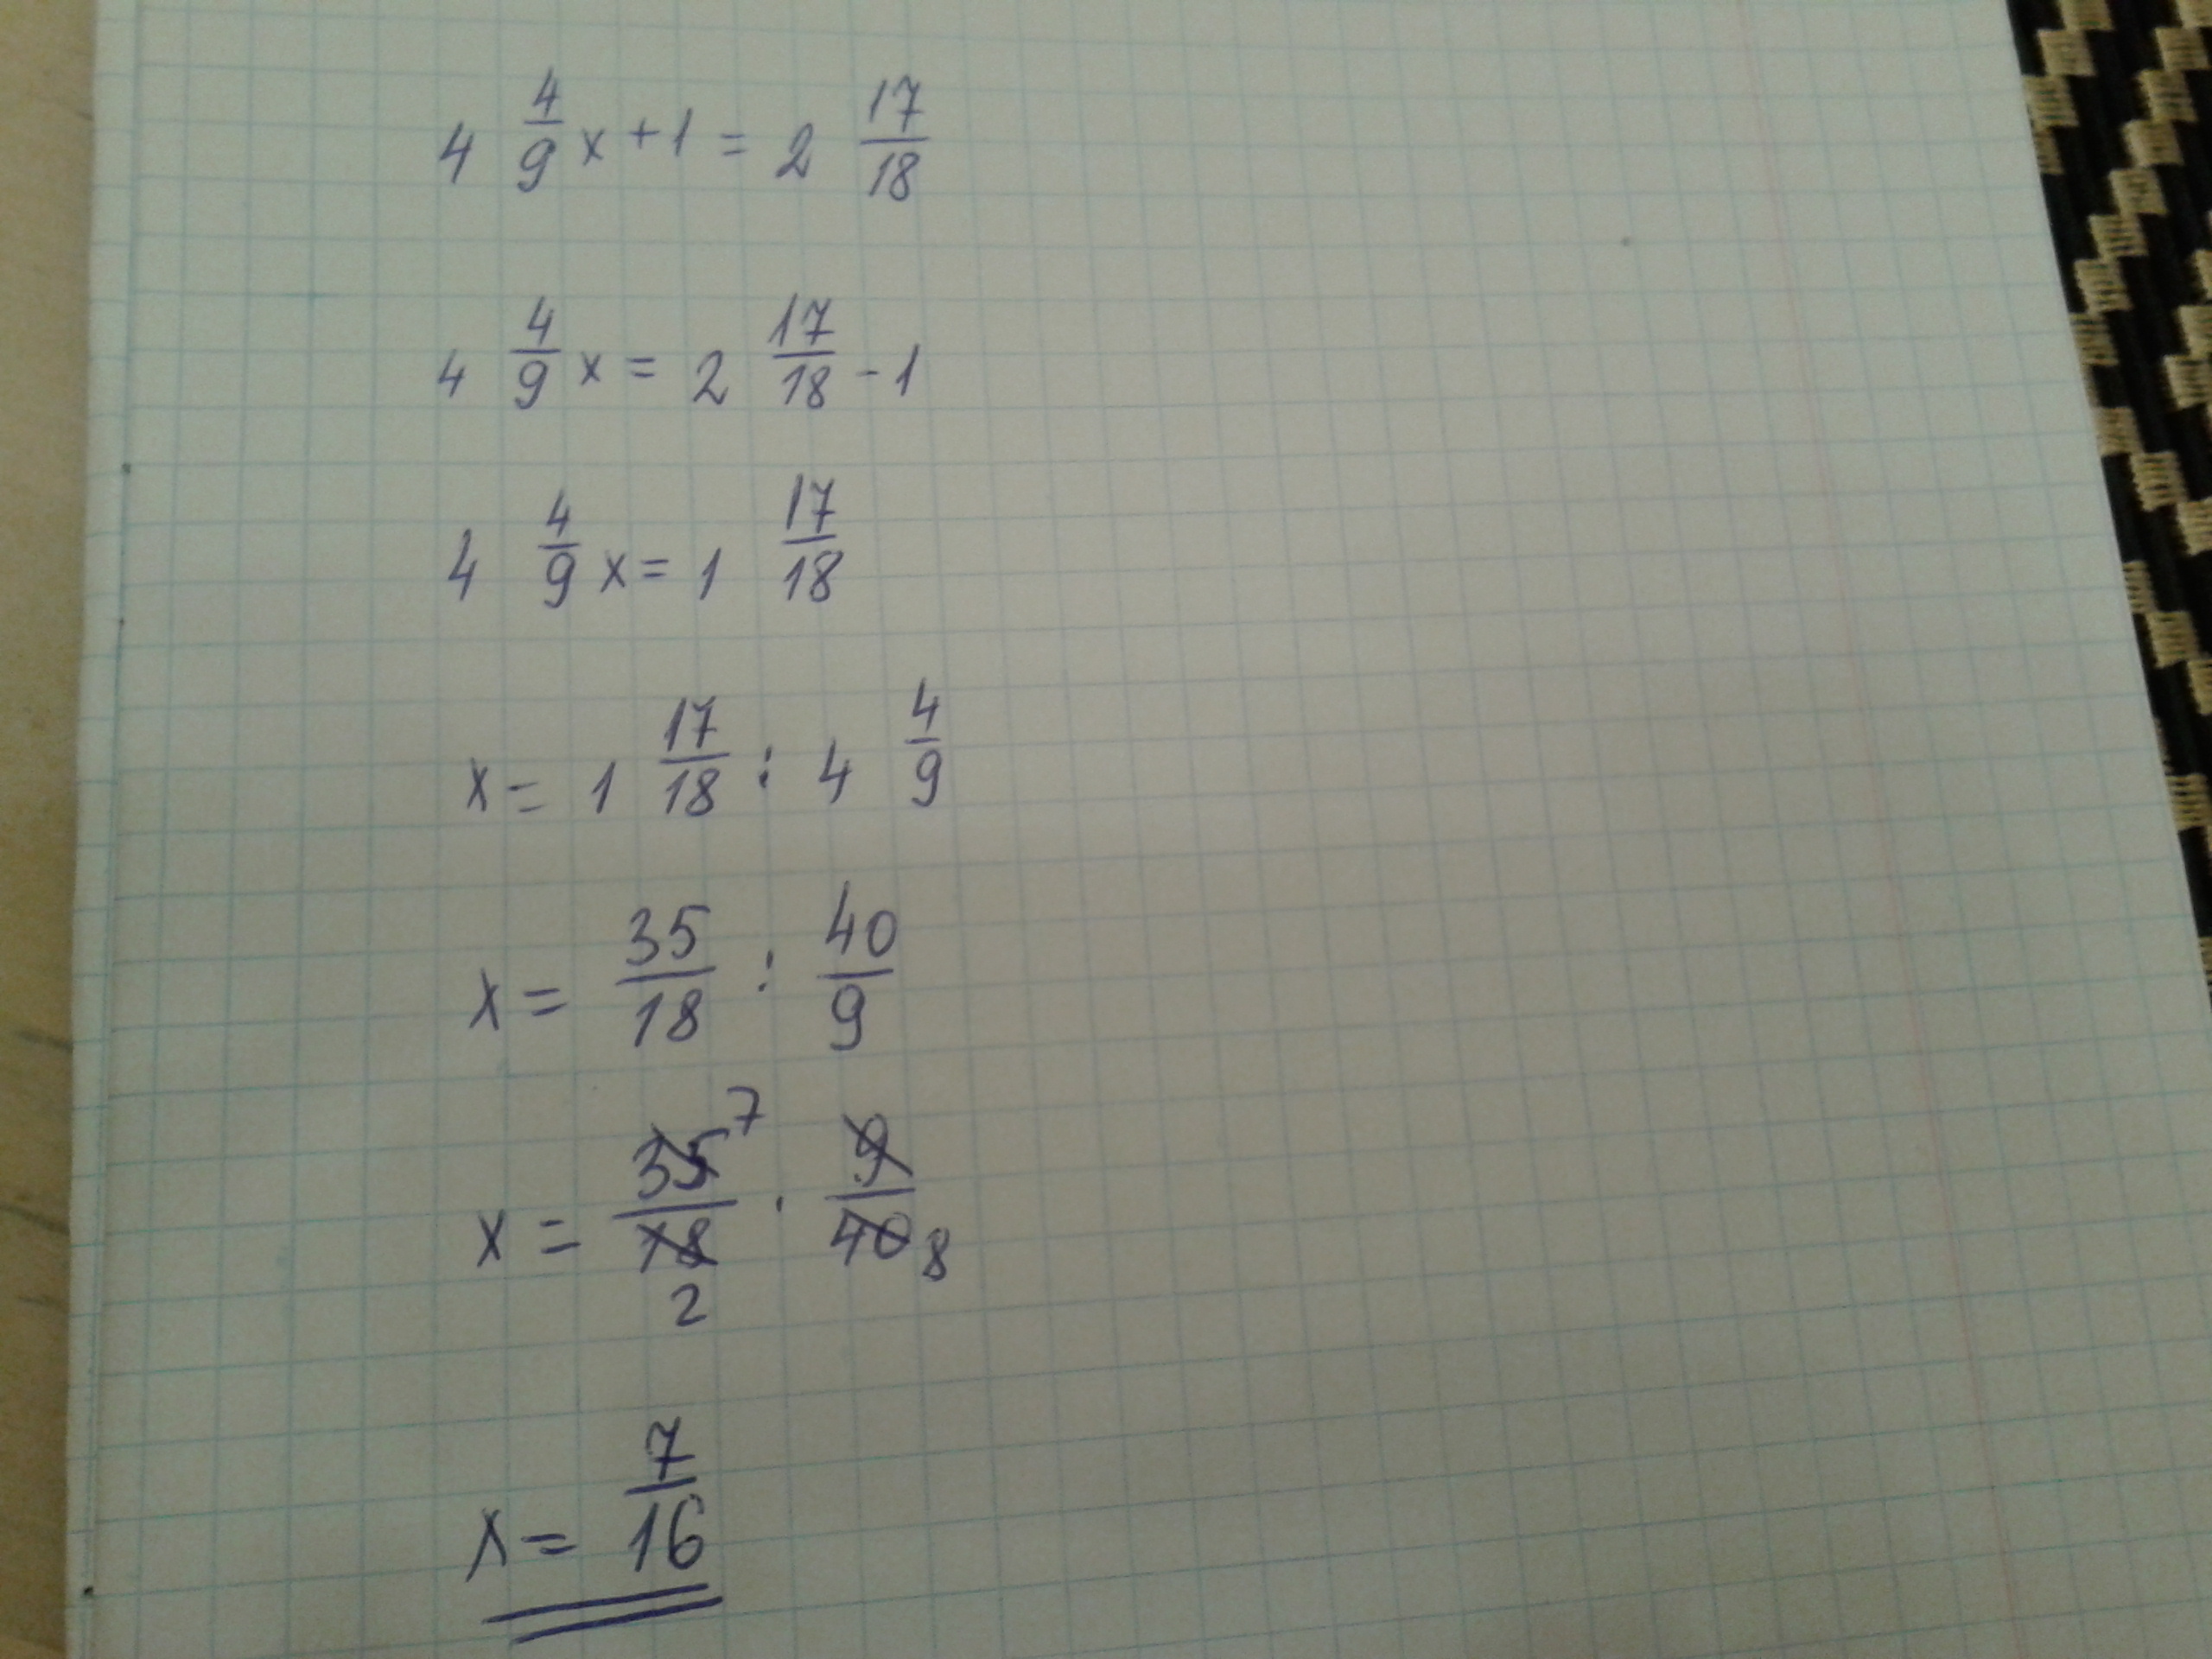 4 4/9 x + 1 = 2 17/18
4 4/9 x = 2 17/18 - 1
4 4/9 x = 1 17/18
x = 1 17/18 : 4 4/9
x = 35/18 : 40/9
x = 35 7/18 2 · 9/40 8
x = 7/16